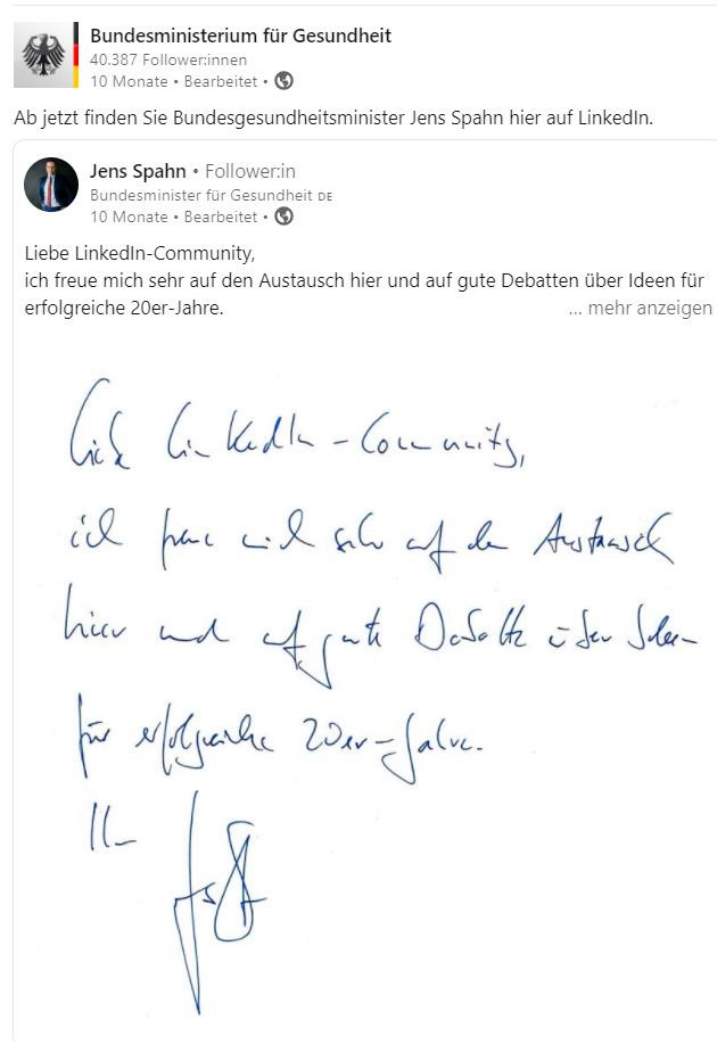 Bundesministerium für Gesundheit
40.387 Follower:innen
10 Monate • Bearbeitet •
Ab jetzt finden Sie Bundesgesundheitsminister Jens Spahn hier auf LinkedIn.
Jens Spahn • Follower:in
Bundesminister für Gesundheit DE
10 Monate • Bearbeitet •
Liebe LinkedIn-Community,
ich freue mich sehr auf den Austausch hier und auf gute Debatten über Ideen für
erfolgreiche 20er-Jahre. ... mehr anzeigen
Liebe LinkedIn-Community,
ich freue mich sehr auf den Austausch
hier und auf gute Debatte über Ideen
für erfolgreiche 20er-Jahre.
Ihr